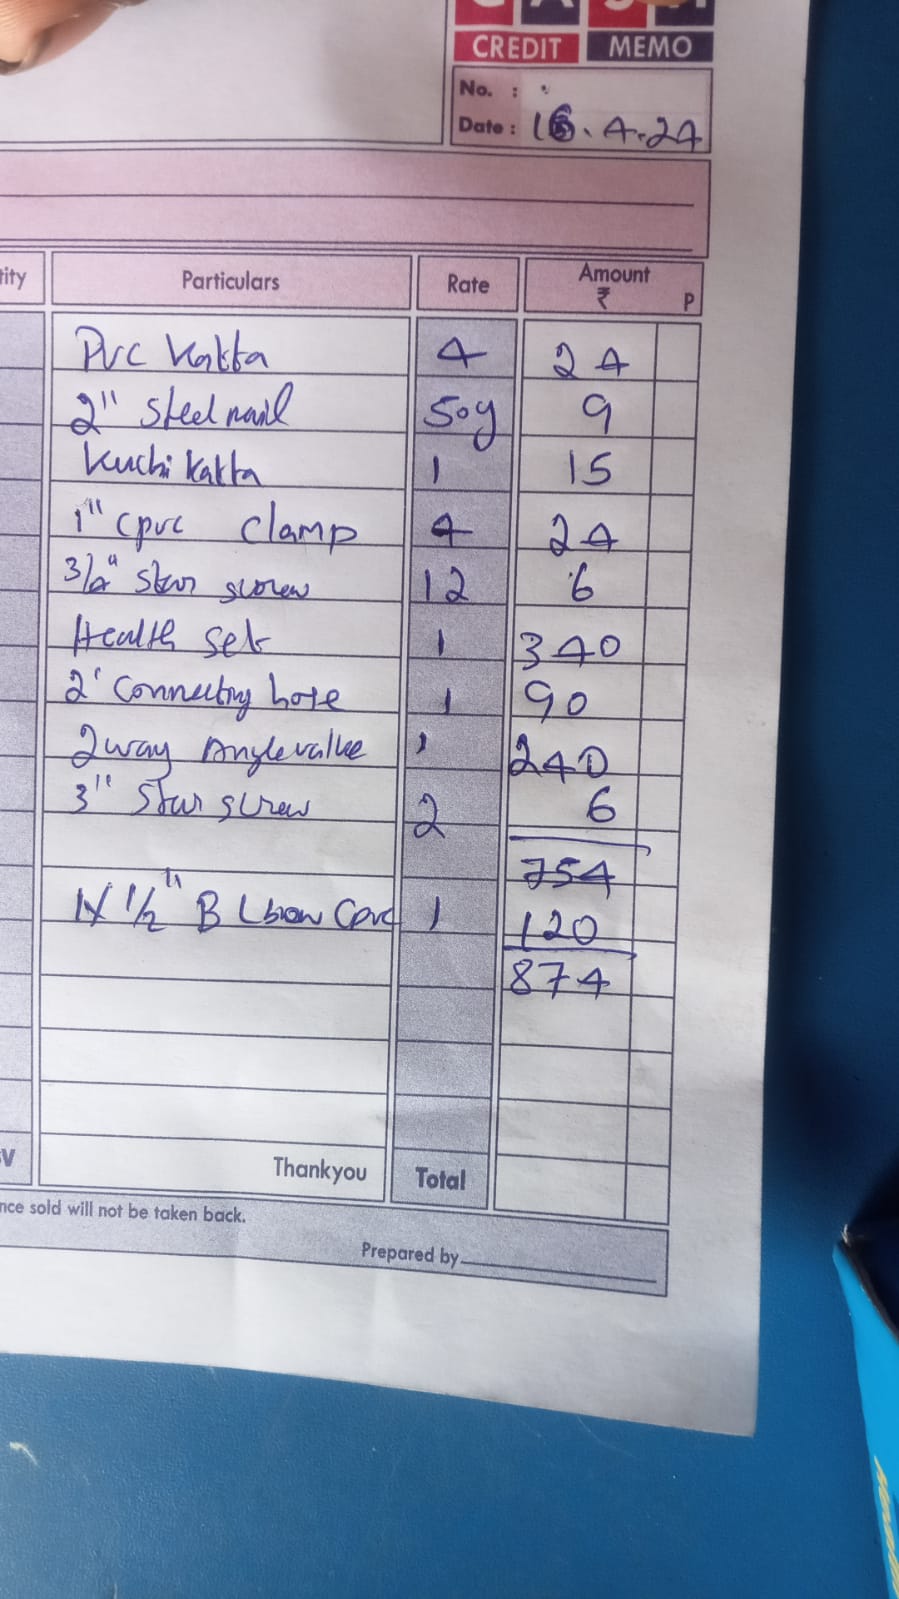 CREDIT MEMO
No. :
Date : 16.4.24
tity Particulars Rate Amount ₹ P
Pvc Katta 4 24
2" Steel nail 50g 9
Kuchi Katta 1 15
1" cpvc clamp 4 24
3/2" Star screw 12 6
Health set 1 340
2' Connecting hose 1 90
2way Angle value 1 240
3" Star screw 2 6
754
1x 1/2" B Lbow Cpvc 1 120
874
Thankyou Total
nce sold will not be taken back.
Prepared by